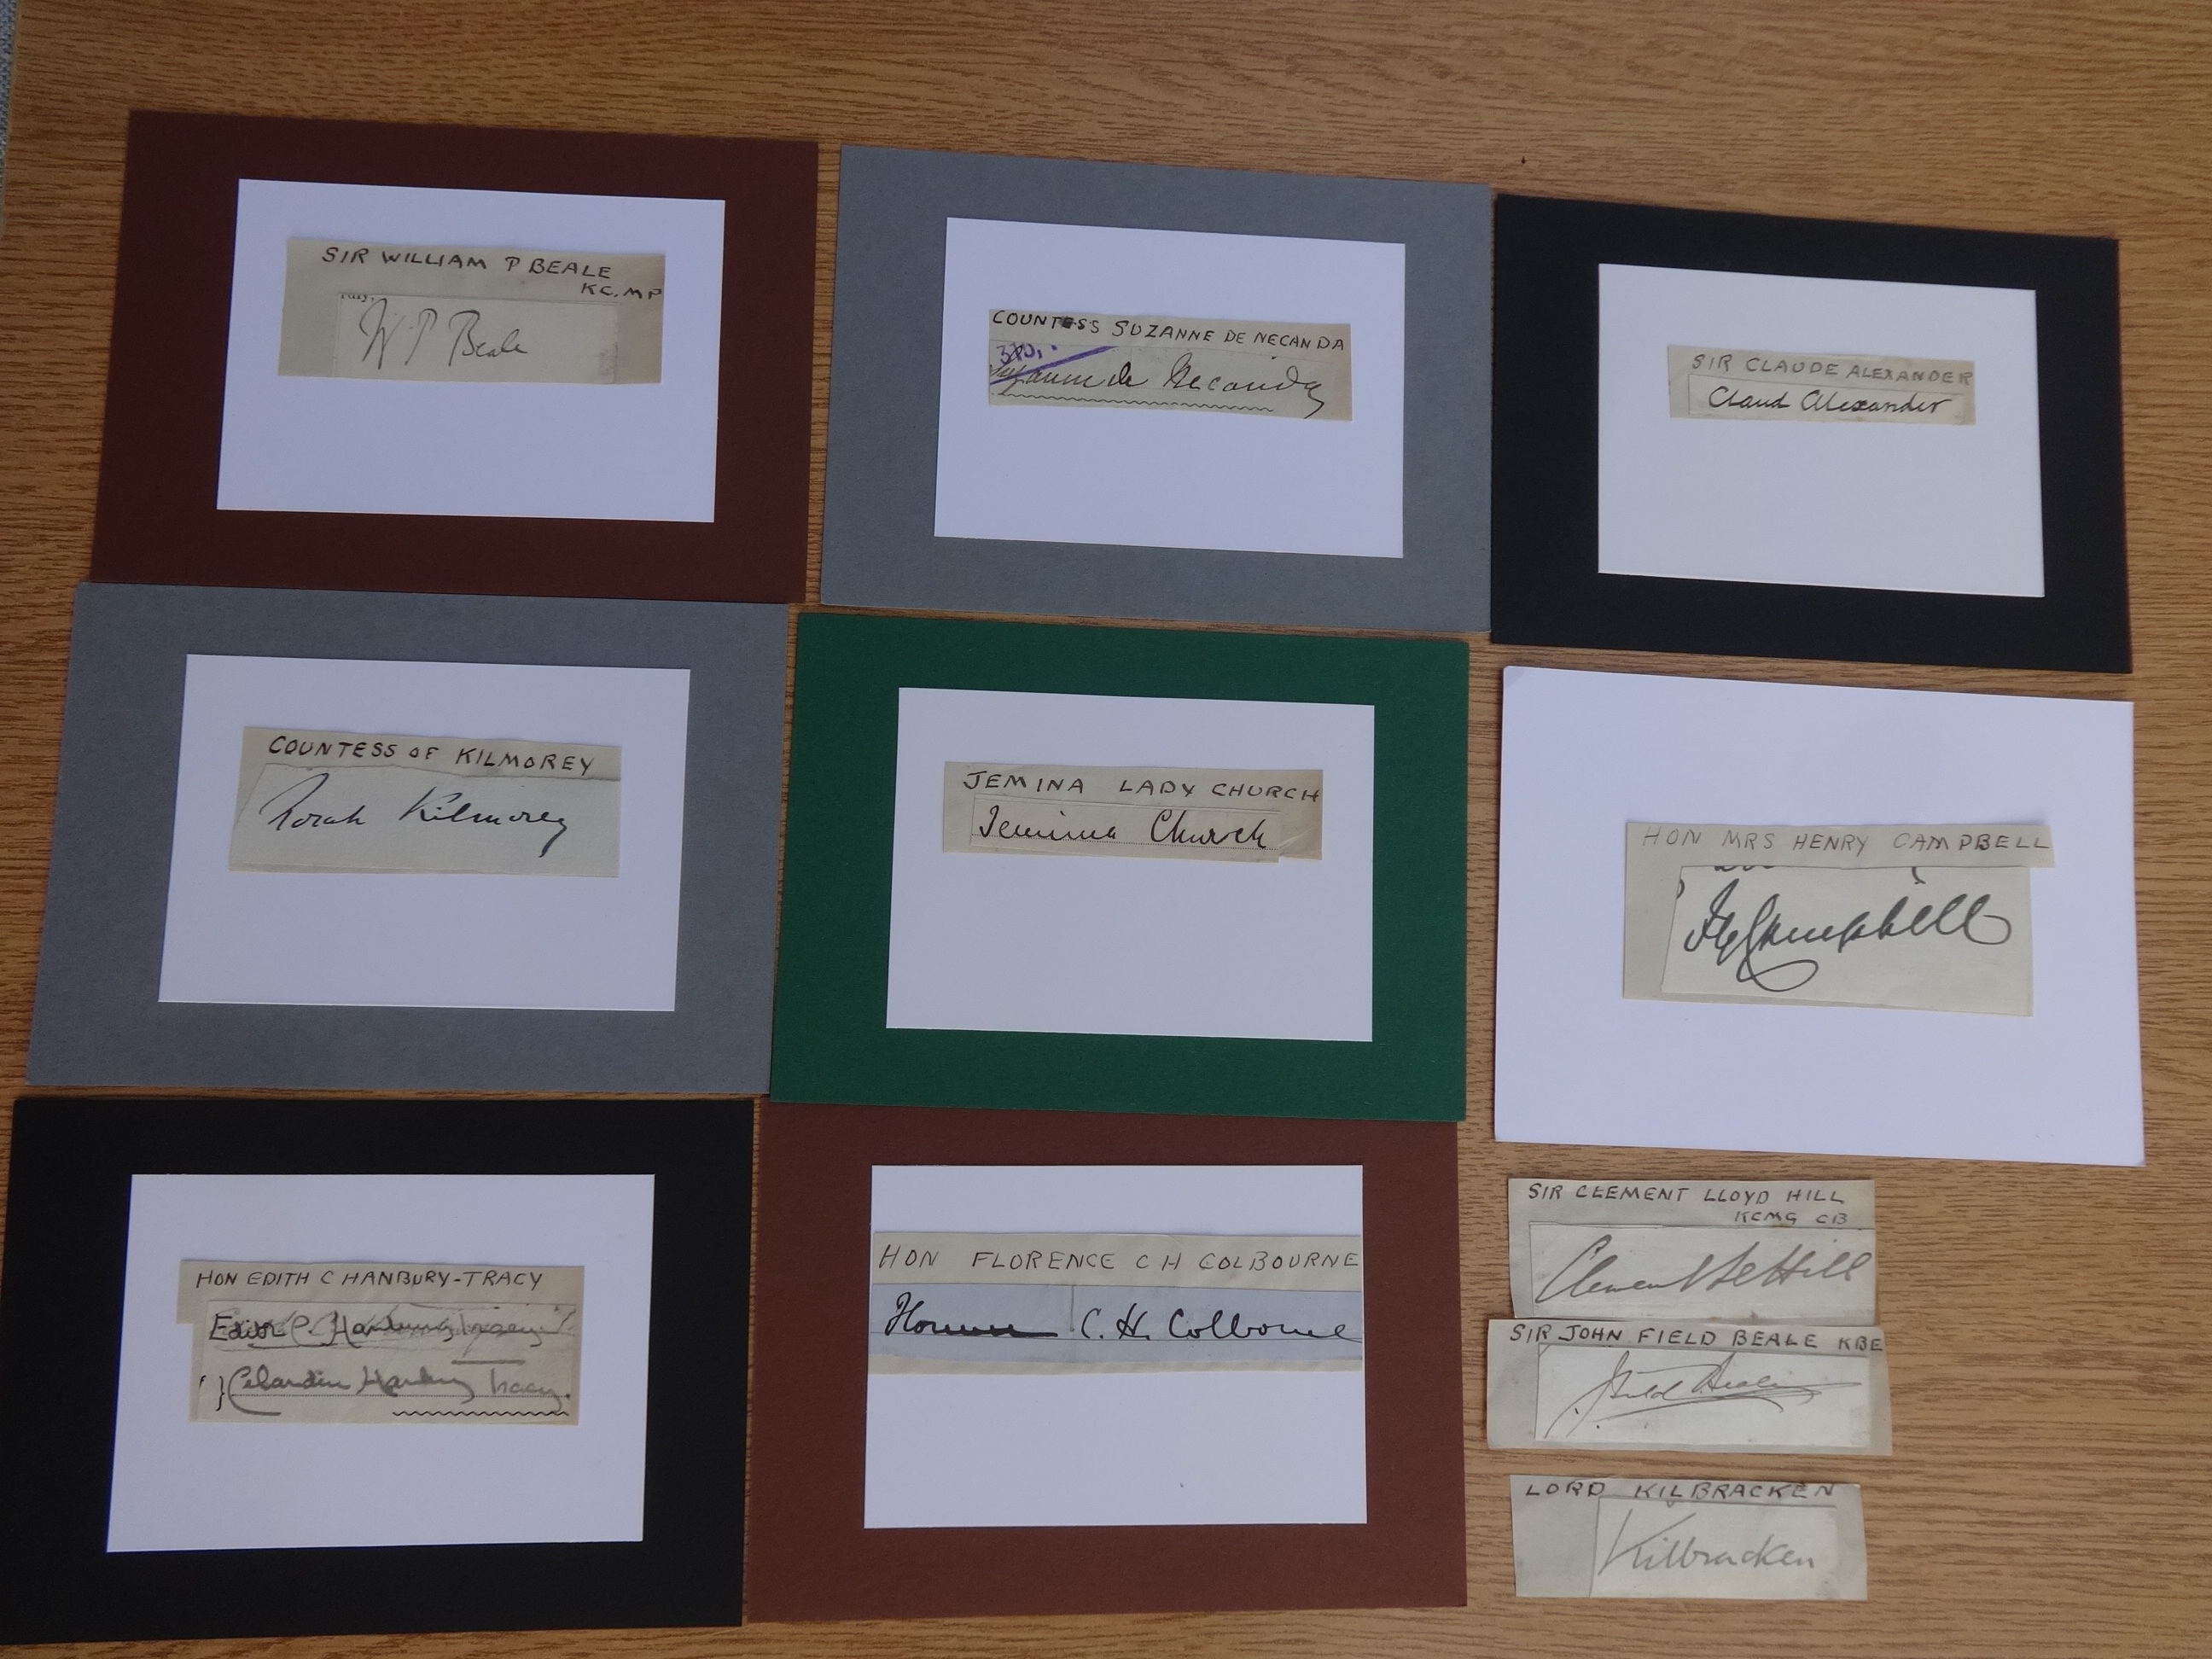 SIR WILLIAM P BEALE
KC. MP
W P Beale
COUNTESS SUZANNE DE NECANDA
310.
Suzanne de Necanda
SIR CLAUDE ALEXANDER
Claud Alexander
COUNTESS OF KILMOREY
Norah Kilmorey
JEMINA LADY CHURCH
Jemima Church
HON MRS HENRY CAMPBELL
Campbell
HON EDITH C HANBURY-TRACY
Edith C. Hanbury Tracy
Hanbury Tracy.
HON FLORENCE C H COLBOURNE
Florence C. H. Colborne
SIR CLEMENT LLOYD HILL
KCMG CB
Clement Ll Hill
SIR JOHN FIELD BEALE KBE
J Field Beale
LORD KILBRACKEN
Kilbracken